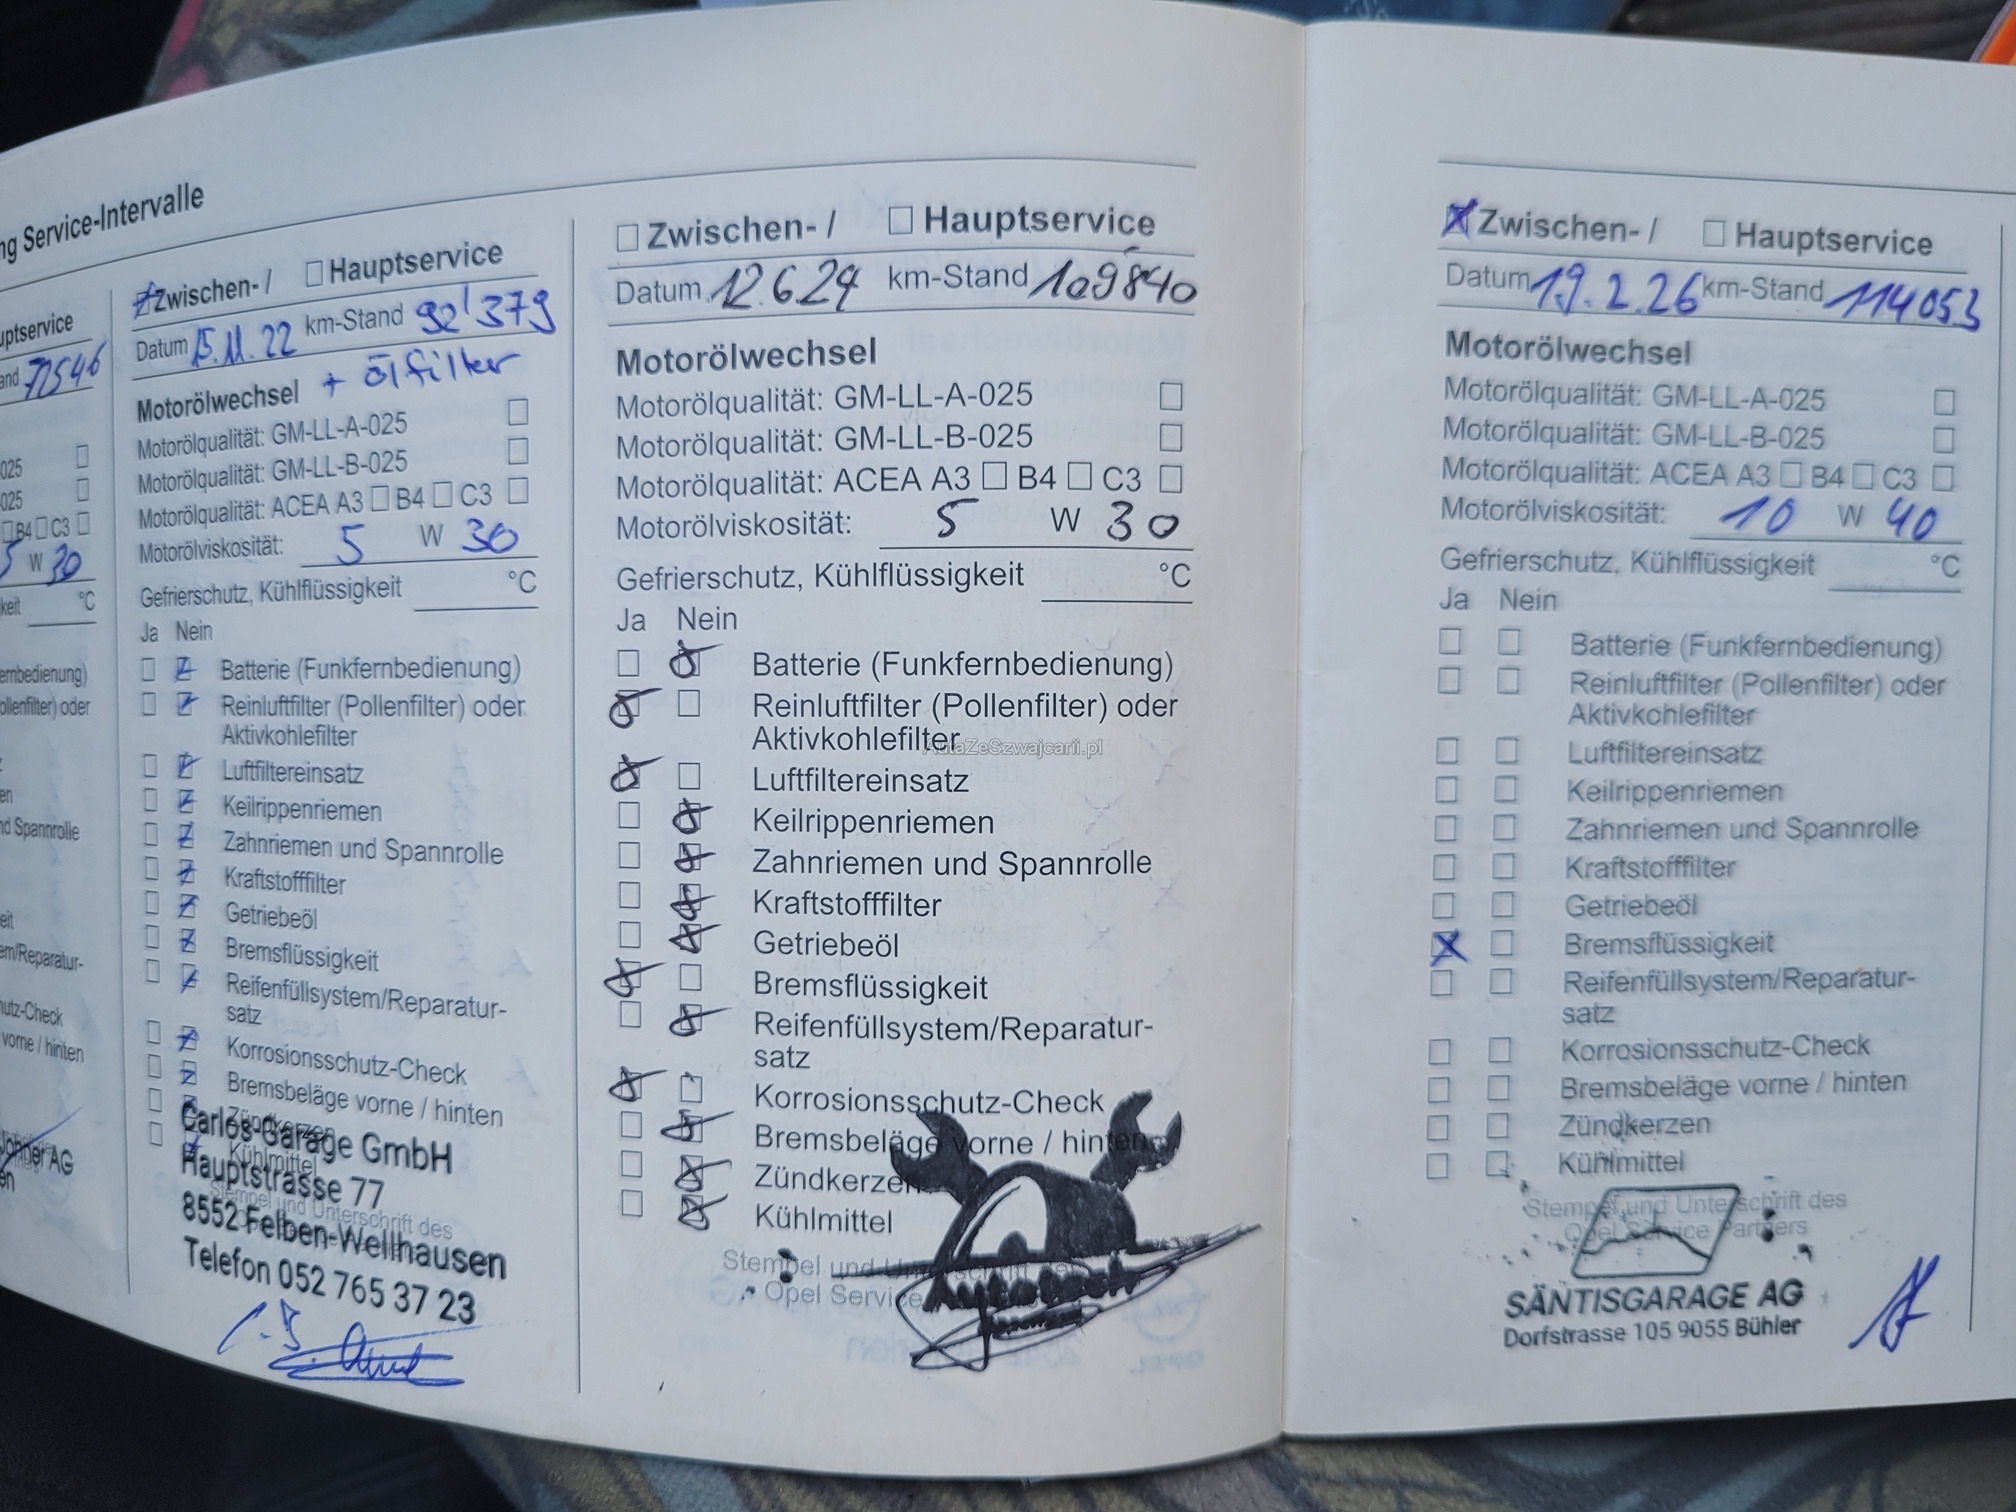 ng Service-Intervalle
uptservice
and 72546
025
025
B4 C3
5 W 30
keit °C
ernbedienung)
ollenfilter) oder
en
nd Spannrolle
eit
em/Reparatur-
utz-Check
vorne / hinten
AG
Zwischen- / Hauptservice
Datum 15.11.22 km-Stand 92'379
Motorölwechsel + ölfilter
Motorölqualität: GM-LL-A-025
Motorölqualität: GM-LL-B-025
Motorölqualität: ACEA A3 B4 C3
Motorölviskosität: 5 W 30
Gefrierschutz, Kühlflüssigkeit °C
Ja Nein
Batterie (Funkfernbedienung)
Reinluftfilter (Pollenfilter) oder
Aktivkohlefilter
Luftfiltereinsatz
Keilrippenriemen
Zahnriemen und Spannrolle
Kraftstofffilter
Getriebeöl
Bremsflüssigkeit
Reifenfüllsystem/Reparatur-
satz
Korrosionsschutz-Check
Bremsbeläge vorne / hinten
Zündkerzen
Kühlmittel
Stempel und Unterschrift des
Carlos-Garage GmbH
Hauptstrasse 77
8552 Felben-Wellhausen
Telefon 052 765 37 23
Zwischen- / Hauptservice
Datum 12.6.24 km-Stand 109840
Motorölwechsel
Motorölqualität: GM-LL-A-025
Motorölqualität: GM-LL-B-025
Motorölqualität: ACEA A3 B4 C3
Motorölviskosität: 5 W 30
Gefrierschutz, Kühlflüssigkeit °C
Ja Nein
Batterie (Funkfernbedienung)
Reinluftfilter (Pollenfilter) oder
Aktivkohlefilter
AutaZeSzwajcarii.pl
Luftfiltereinsatz
Keilrippenriemen
Zahnriemen und Spannrolle
Kraftstofffilter
Getriebeöl
Bremsflüssigkeit
Reifenfüllsystem/Reparatur-
satz
Korrosionsschutz-Check
Bremsbeläge vorne / hinten
Zündkerzen
Kühlmittel
Stempel und
Opel Service
Zwischen- / Hauptservice
Datum 19.2.26 km-Stand 114053
Motorölwechsel
Motorölqualität: GM-LL-A-025
Motorölqualität: GM-LL-B-025
Motorölqualität: ACEA A3 B4 C3
Motorölviskosität: 10 W 40
Gefrierschutz, Kühlflüssigkeit °C
Ja Nein
Batterie (Funkfernbedienung)
Reinluftfilter (Pollenfilter) oder
Aktivkohlefilter
Luftfiltereinsatz
Keilrippenriemen
Zahnriemen und Spannrolle
Kraftstofffilter
Getriebeöl
Bremsflüssigkeit
Reifenfüllsystem/Reparatur-
satz
Korrosionsschutz-Check
Bremsbeläge vorne / hinten
Zündkerzen
Kühlmittel
Stempel und Unterschrift des
Opel Service Partners
SÄNTISGARAGE AG
Dorfstrasse 105 9055 Bühler